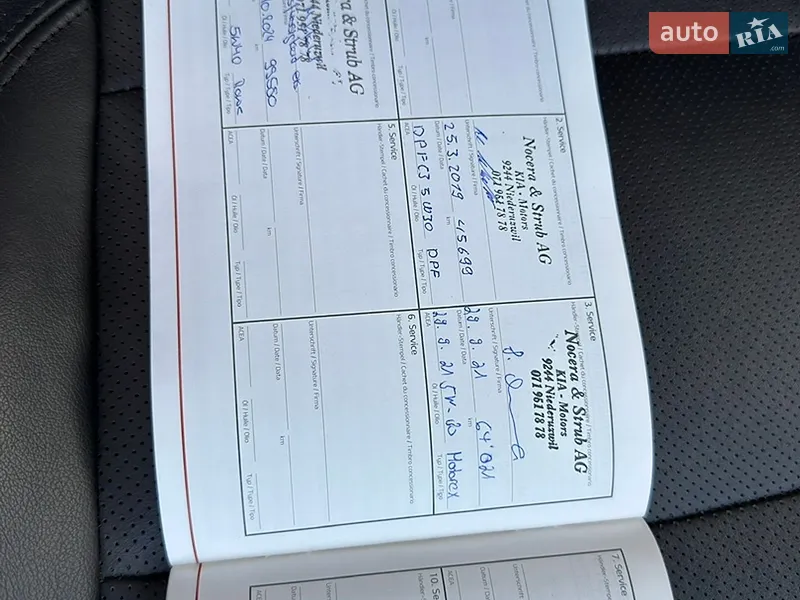 auto RIA .com
Nocera & Strub AG
071 961 78 78
99580
5W40
Typ / Type / Tipo
Öl / Huile / Olio
2. Service
Händler-Stempel / Cachet du concessionnaire / Timbro concessionario
Nocera & Strub AG
KIA - Motors
9244 Niederuzwil
071 961 78 78
Unterschrift / Signature / Firma
25.3.2019 45699
Datum / Date / Data
km
DPF C3 5W30 DPF
ACEA
Öl / Huile / Olio
Typ / Type / Tipo
3. Service
Händler-Stempel / Cachet du concessionnaire / Timbro concessionario
Nocera & Strub AG
KIA - Motors
9244 Niederuzwil
071 961 78 78
Unterschrift / Signature / Firma
29.9.21 64'021
Datum / Date / Data
km
29.9.21 5W-30 Motorex
ACEA
Öl / Huile / Olio
Typ / Type / Tipo
5. Service
Händler-Stempel / Cachet du concessionnaire / Timbro concessionario
Unterschrift / Signature / Firma
Datum / Date / Data
km
ACEA
Öl / Huile / Olio
Typ / Type / Tipo
6. Service
Händler-Stempel / Cachet du concessionnaire / Timbro concessionario
Unterschrift / Signature / Firma
Datum / Date / Data
km
ACEA
Öl / Huile / Olio
Typ / Type / Tipo
7. Service
Händler-Stempel
Unterschrift
Datum / D
ACEA
10. Se
Händler-S
Unterschrift
Datum / Da
ACEA